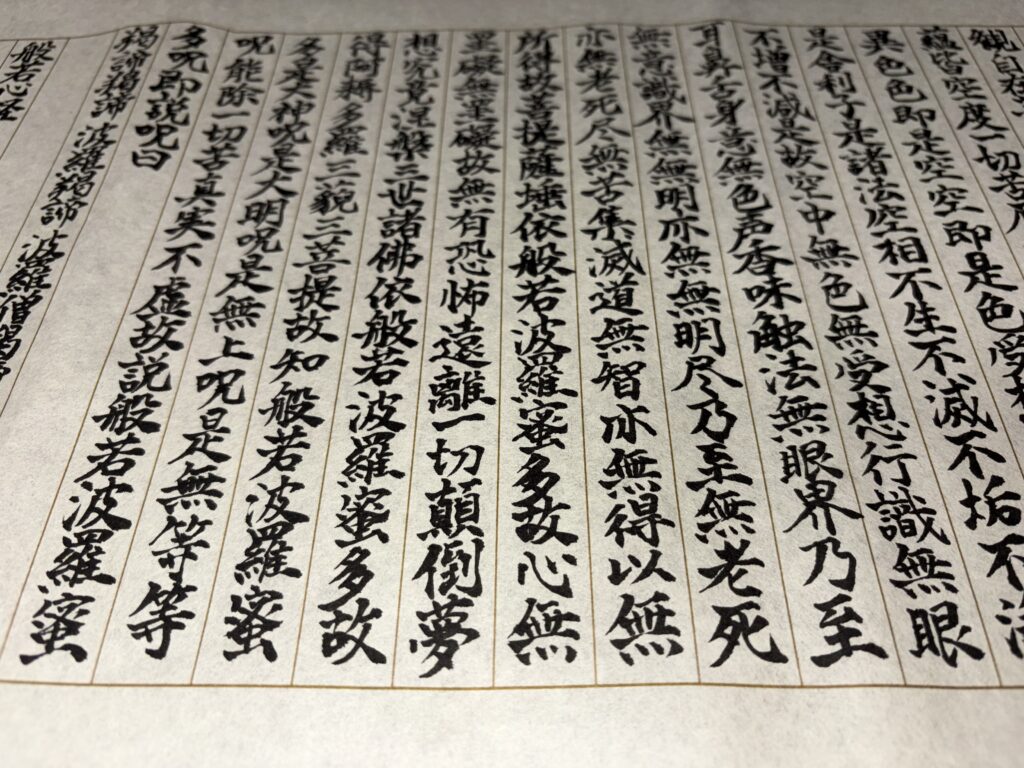 観自在
蘊皆空度一切苦厄
異色色即是空空即是色受想
是舎利子是諸法空相不生不滅不垢不浄
不増不減是故空中無色無受想行識無眼
耳鼻舌身意無色声香味触法無眼界乃至
無意識界無無明亦無無明尽乃至無老死
亦無老死尽無苦集滅道無智亦無得以無
所得故菩提薩埵依般若波羅蜜多故心無
罣礙無罣礙故無有恐怖遠離一切顛倒夢
想究竟涅槃三世諸佛依般若波羅蜜多故
得阿耨多羅三藐三菩提故知般若波羅蜜
多是大神呪是大明呪是無上呪是無等等
呪能除一切苦真実不虚故説般若波羅蜜
多呪即説呪曰
羯諦羯諦 波羅羯諦 波羅僧羯諦
般若心経